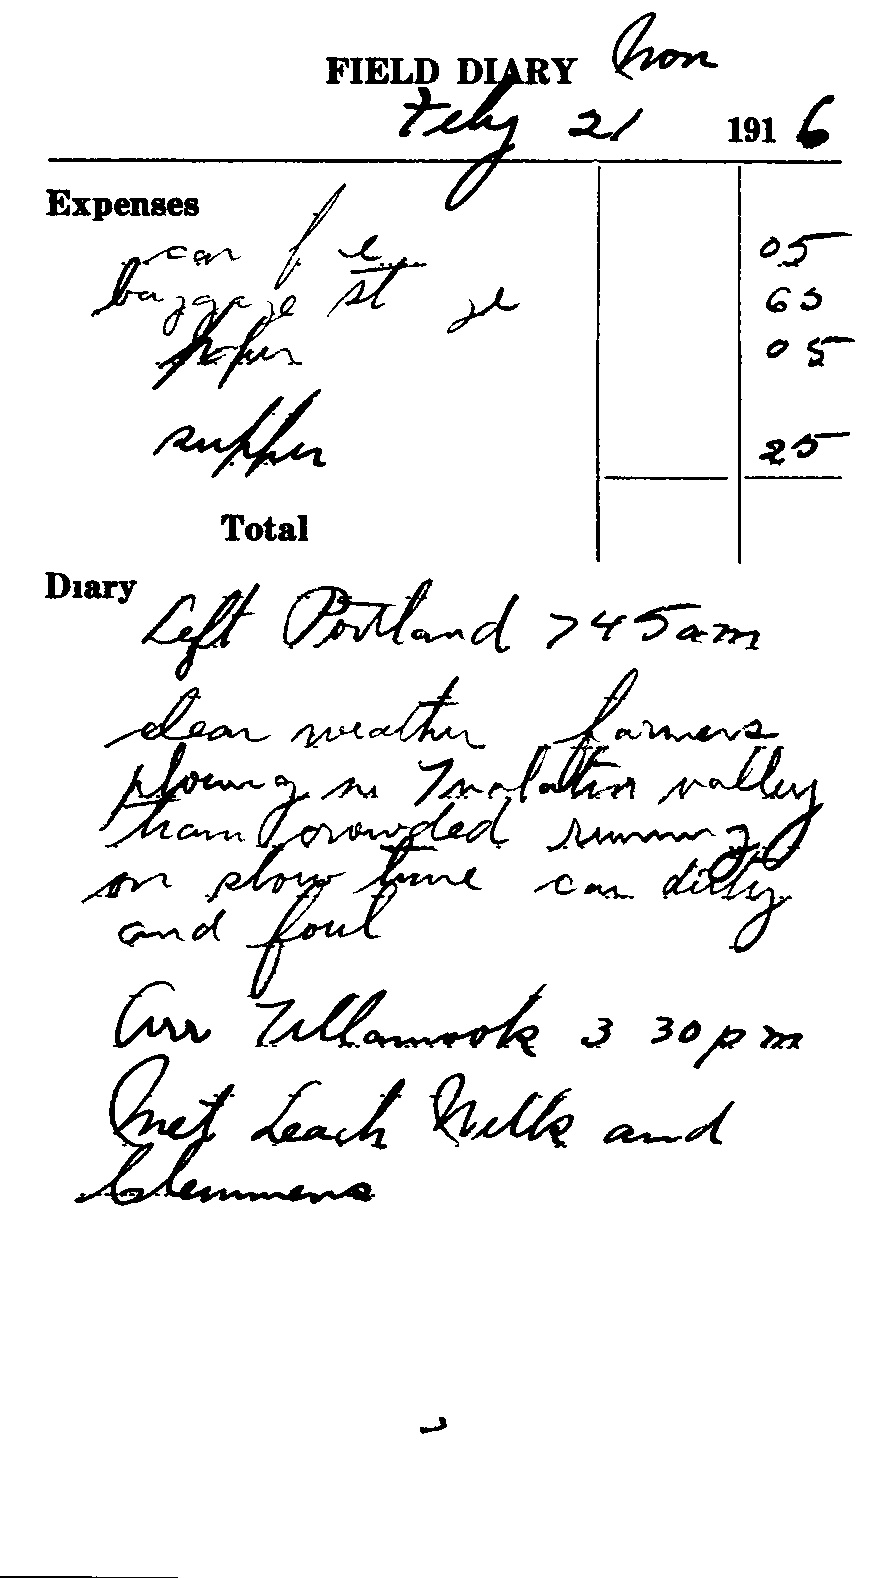 FIELD DIARY Mon
Feby 21 1916
Expenses
car f e 05
baggage st ge 65
paper 05
supper 25
Total
Diary
Left Portland 745 am
clear weather farmers
plowing in Tualatin valley
train crowded running
on slow time car dirty
and foul
Arr Tillamook 3 30 pm
Met Leach Mills and
Clemmens